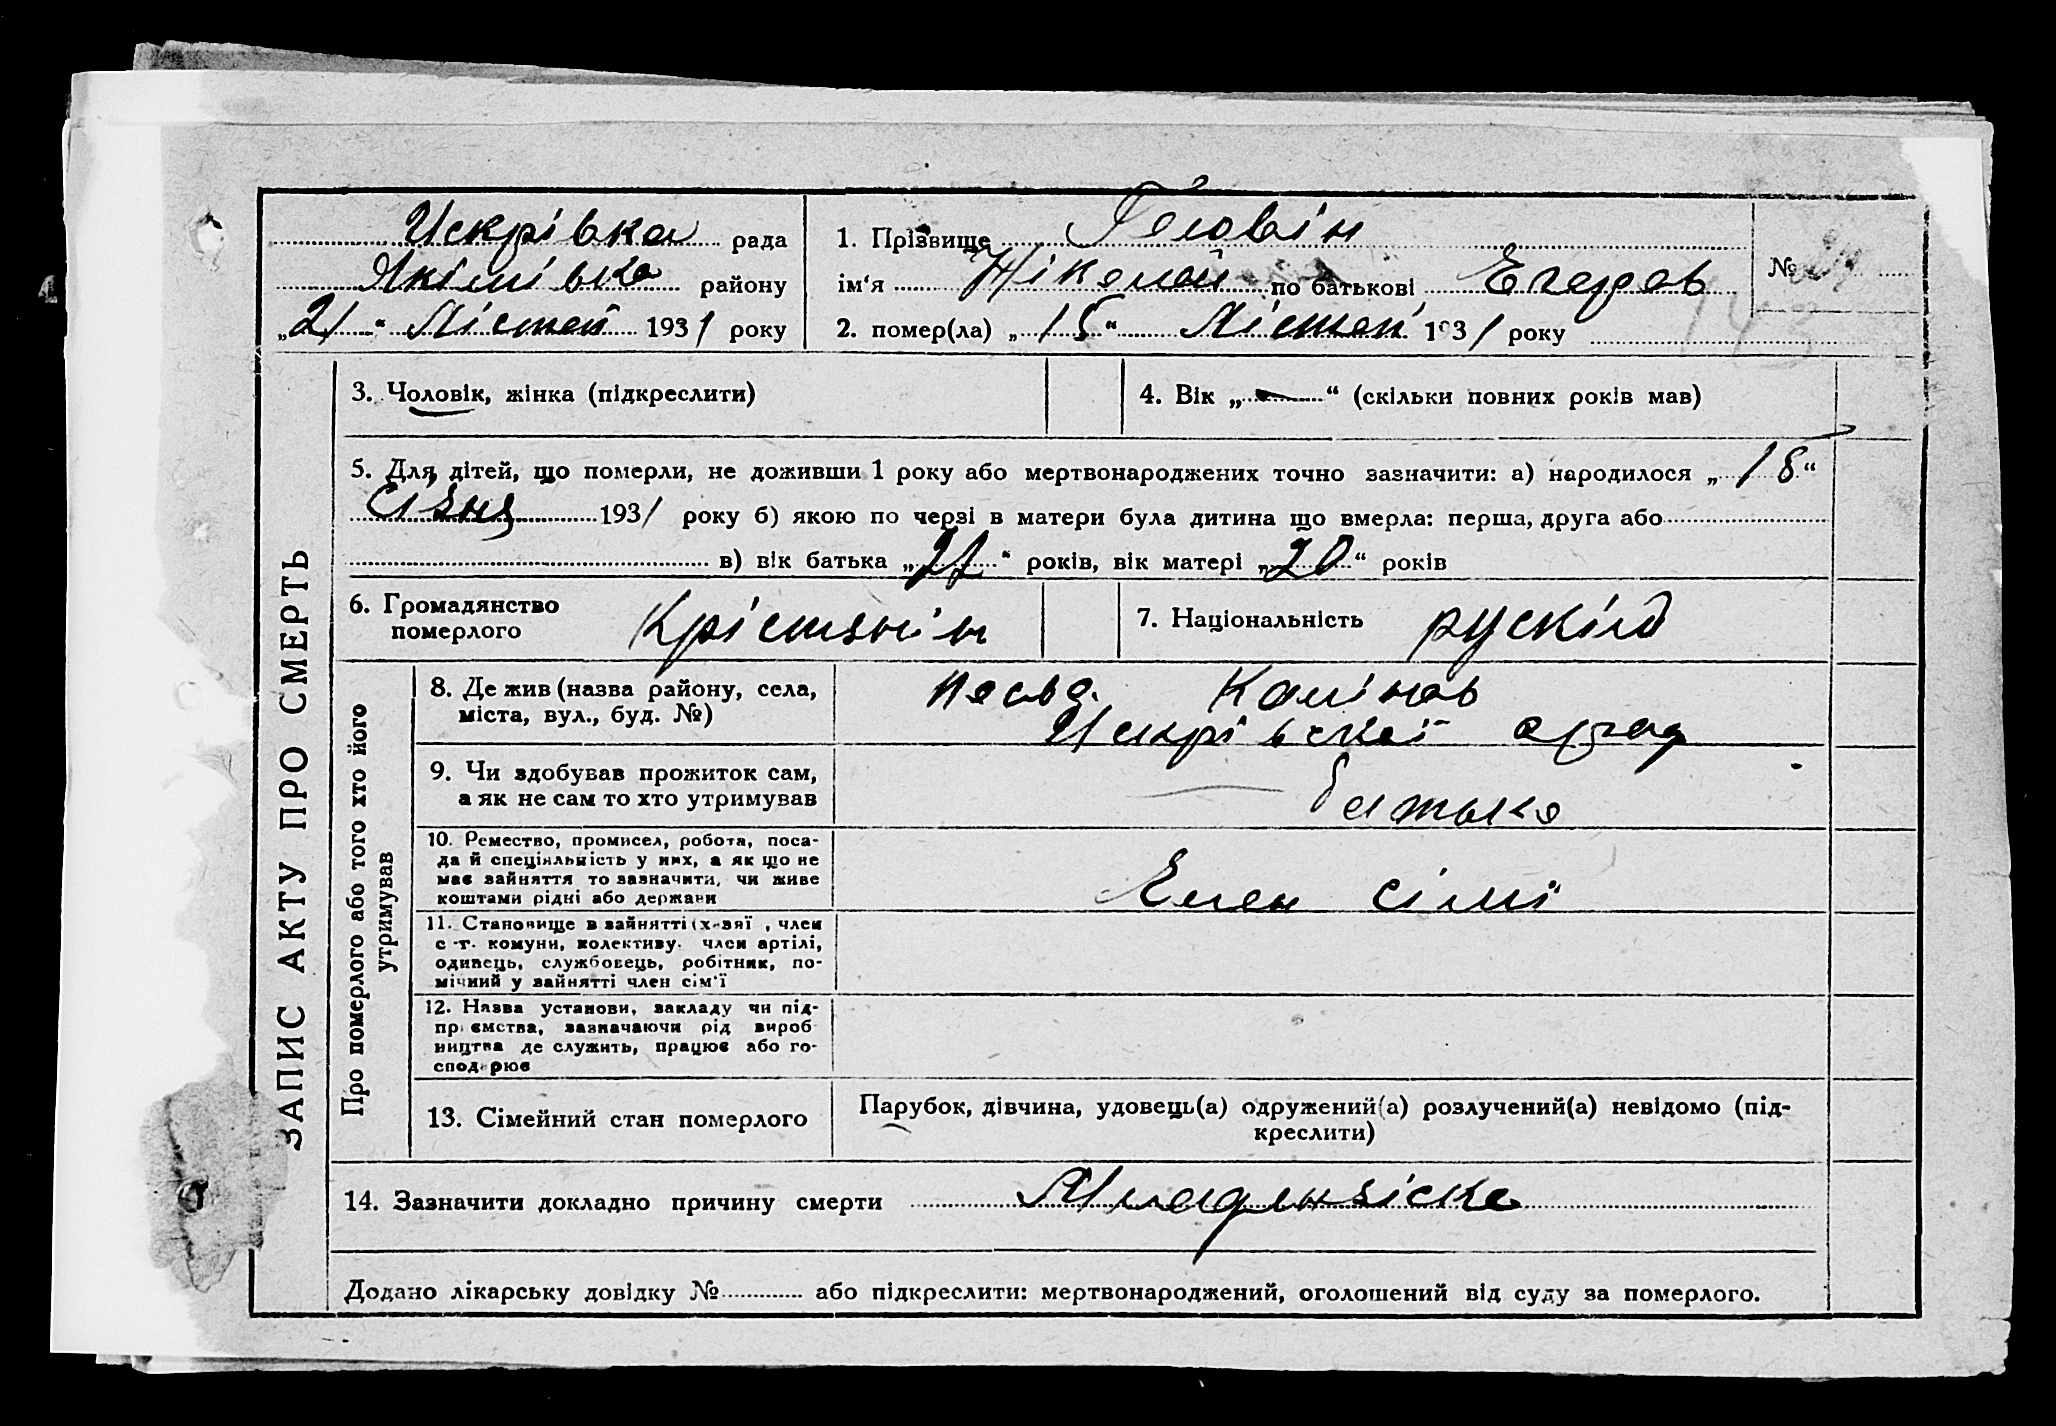 Искрівка рада
Якімівка району
„21“ Лістоп 1931 року
1. Прізвище Головін
ім‘я Ніколай по батькові Егоров
№
2. помер(ла) „15“ Лістоп 1931 року
3. Чоловік, жінка (підкреслити)
4. Вік „—“ (скільки повних років мав)
5. Для дітей, що померли, не доживши 1 року або мертвонароджених точно зазначити: а) народилося „18“
Січня 1931 року б) якою по черзі в матери була дитина що вмерла: перша, друга або
в) вік батька „21“ років, вік матері „20“ років
6. Громадянство
померлого
Крістянін
7. Національність рускій
ЗАПИС АКТУ ПРО СМЕРТЬ
Про померлого або того хто його
утримував
8. Де жив (назва району, села,
міста, вул., буд. №)
Калінов
Искрівскої
9. Чи здобував прожиток сам,
а як не сам то хто утримував
— батько
10. Ремество, промисел, робота, поса-
да й спеціяльність у них, а як що не
має зайняття то зазначити, чи живе
коштами рідні або держави
Член сімї
11. Становище в зайнятті (х-вяї , член
с -т. комуни, колективу, член артілі,
одинець, службовець, робітник, по-
мічний у зайнятті член сім‘ї
12. Назва установи, закладу чи під-
приємства, зазначаючи рід вироб
ництва де служить, працює або го-
сподарює
13. Сімейний стан померлого
Парубок, дівчина, удовець(а) одружений(а) розлучений(а) невідомо (під-
креслити)
14. Зазначити докладно причину смерти Младензіске
Додано лікарську довідку № або підкреслити: мертвонароджений, оголошений від суду за померлого.